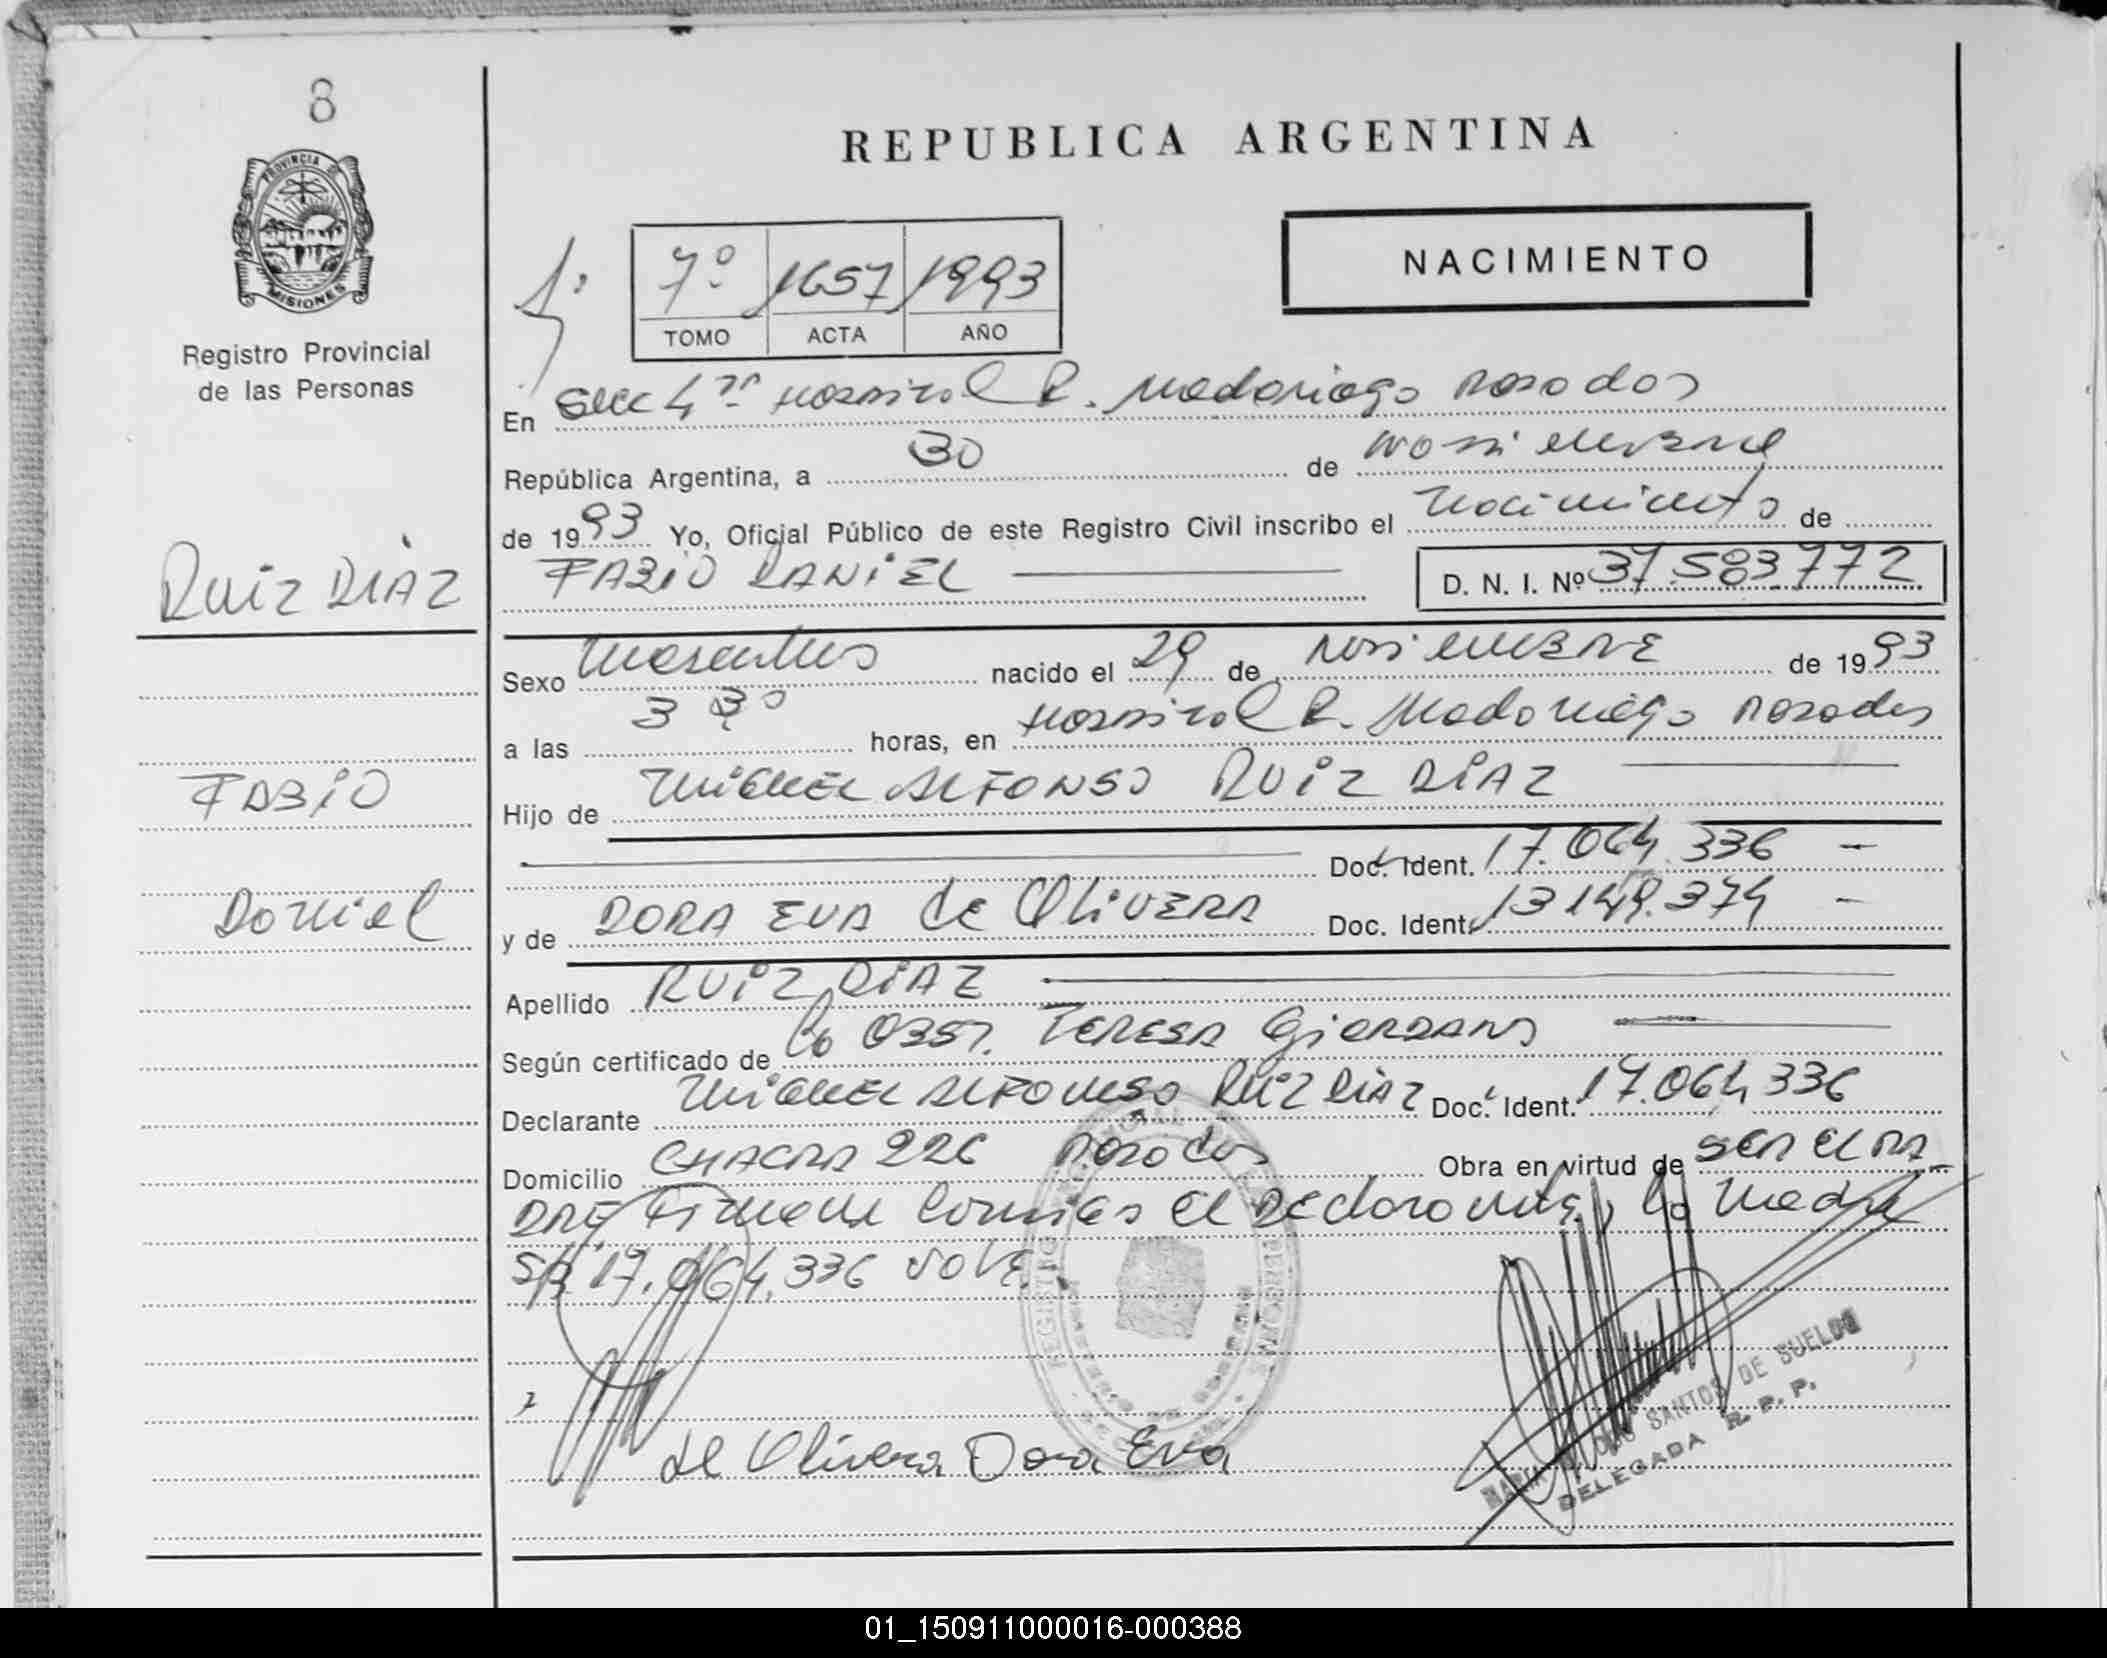 8
REPUBLICA ARGENTINA
PROVINCIA DE
MISIONES
Registro Provincial
de las Personas
7º 1657 1993
TOMO ACTA AÑO
NACIMIENTO
En Secc 4ª Hospital R. Madariaga Posadas
República Argentina, a 30 de Noviembre
de 1993 Yo, Oficial Público de este Registro Civil inscribo el Nacimiento de
FABIO DANIEL D. N. I. Nº 37.583.772
RUIZ DIAZ
Sexo Masculino nacido el 29 de NOVIEMBRE de 1993
a las 3 horas, en Hospital R. Madariaga Posadas
FABIO
Hijo de MIGUEL ALFONSO RUIZ DIAZ
Doc. Ident. 17.064.336 -
Daniel
y de DORA EVA de OLIVERA Doc. Ident. 13.149.374 -
Apellido RUIZ DIAZ
Según certificado de La Obst. TERESA GIORDANO
Declarante MIGUEL ALFONSO RUIZ DIAZ Doc. Ident. 17.064.336
Domicilio CHACRA 226 Posadas Obra en virtud de SER EL PA
DRE Firmane Conmigo el Declarante, la Madre
S/R 17.064.336 VALE.
de Olivera Dora Eva
SANTOS DE SUELDO
DELEGADA R. P. P.
01_150911000016-000388